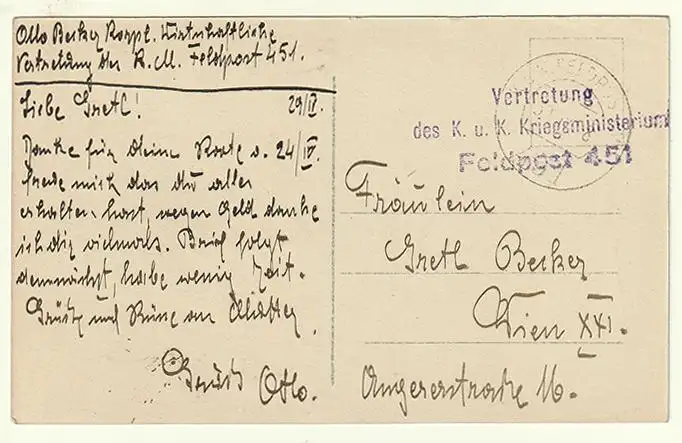 Otto Becker Korpl. Wirtschaftliche
Vertretung des K.M. Feldpost 451.
Liebe Gretl! 29/IV.
Danke für deine Karte v. 24/IV.
freue mich das du alles
erhalten hast, wegen Geld danke
ich dir vielmals. Brief folgt
demnächst, habe wenig Zeit.
Grüße und Küsse an Mutter
Gruß Otto.
Vertretung
des K. u. K. Kriegsministerium
Feldpost 451
Fräulein
Gretl Becker
Wien XXI.
Angererstraße 16.